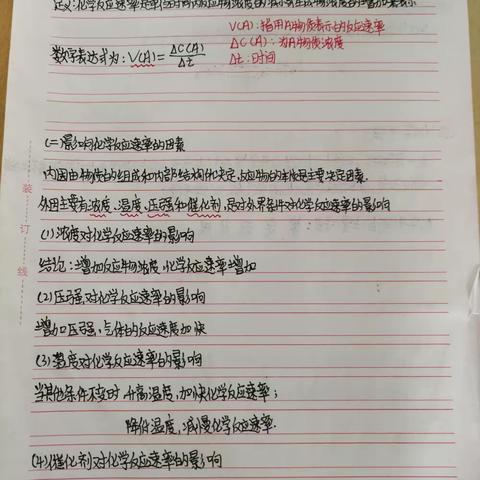 定义:化学反应速率是单位时间内反应物浓度的减小或生成物浓度的增加来表示
V(A):指用A物质表示的反应速率
数学表达式为:V(A)=ΔC(A)/Δt
ΔC(A):为A物质浓度
Δt:时间
(二)影响化学反应速率的因素
内因由物质的组成和内部结构化决定,反应物的本性是主要决定因素.
外因主要有浓度、温度、压强和催化剂,是对外界条件对化学反应速率的影响
(1)浓度对化学反应速率的影响
结论:增加反应物浓度,化学反应速率增加
(2)压强对化学反应速率的影响
增加压强,气体的反应速度加快
(3)温度对化学反应速率的影响
当其他条件不变时 升高温度,加快化学反应速率;
降低温度,减慢化学反应速率.
(4)催化剂对化学反应速率的影响
装
订
线